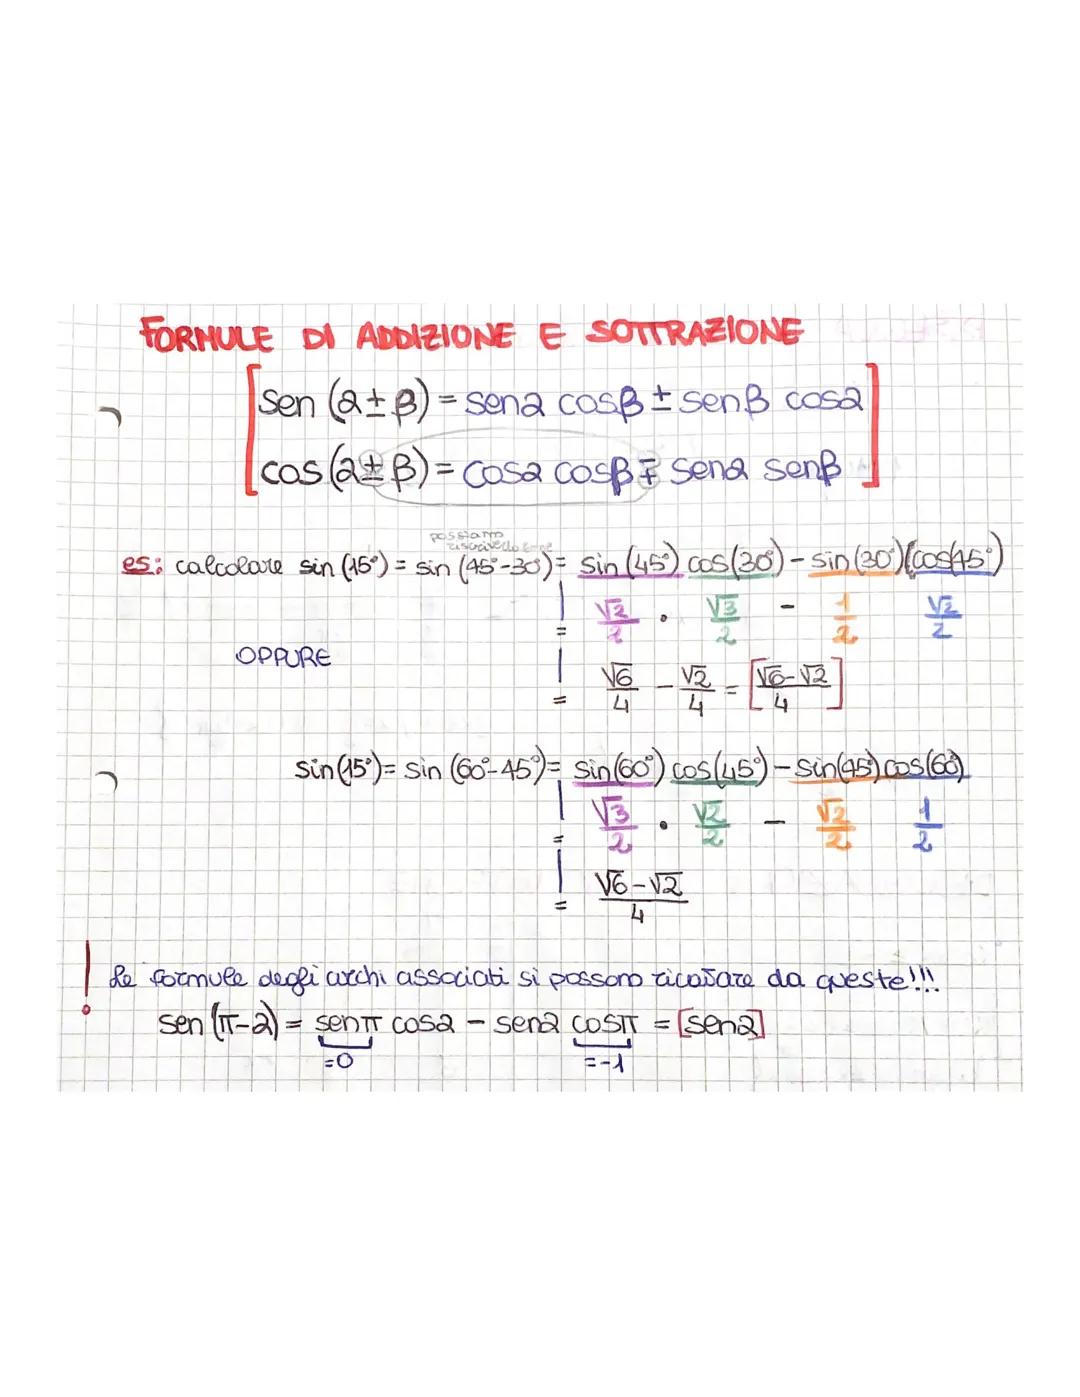 FORMULE DI ADDIZIONE E SOTTRAZIONE
sen (α ± β) = senα cosβ ± senβ cosα
cos (α ± β) = cosα cosβ ∓ senα senβ
possiamo
riscriverlo come
es: calcolare sin (15°) = sin (45°-30°) = sin (45°) cos(30°) - sin (30°)(cos45°)
= √2/2 · √3/2 - 1/2 √2/2
OPPURE
= √6/4 - √2/4 = [√6-√2/4]
sin(15°) = sin (60°-45°) = sin(60°) cos(45°) - sin(45°) cos(60°)
= √3/2 · √2/2 - √2/2 1/2
= √6-√2/4
! Le formule degli archi associati si possono ricavare da queste!!!
sen (π-α) = senπ cosα - senα cosπ = [senα]
=0 =-1